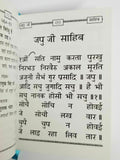 जपु जी साहिब
सति नामु करता पुरखु
निरभउ निरवैर अकाल मूरति
अजूनी सैभं गुर प्रसादि ॥ जपु ॥
आदि सचु जुगादि सचु ॥ है भी
सचु नानक होसी भी सचु ॥१॥
सोचै सोचि न होवई
जे सोची लख वार ॥
चुपै चुप न होवई
जे लाइ रहा लिव तार ॥